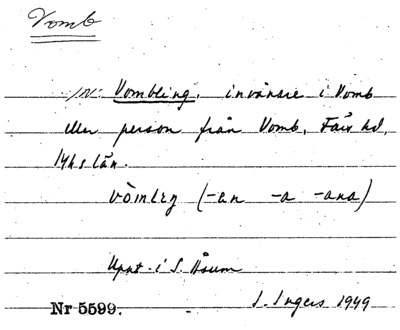 Vomb
IN: Vombling, invånare i Vomb
eller person från Vomb, Färs hd,
Mhs län.
vòmleŋ (-en -a -ana)
Uppt. i S. Åsum
I. Ingers 1949
Nr 5599.